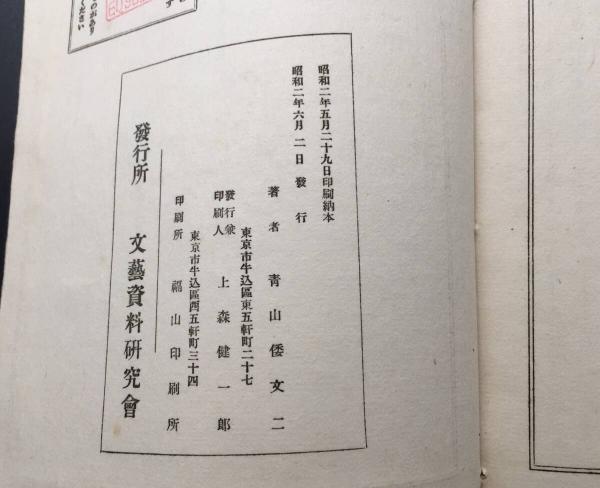 昭和二年五月二十九日印刷納本
昭和二年六月二日發行
著者 靑山倭文二
東京市牛込區東五軒町二十七
發行兼
印刷人 上森健一郎
東京市牛込區西五軒町三十四
印刷所 福山印刷所
發行所 文藝資料研究會
ものがあり
ください